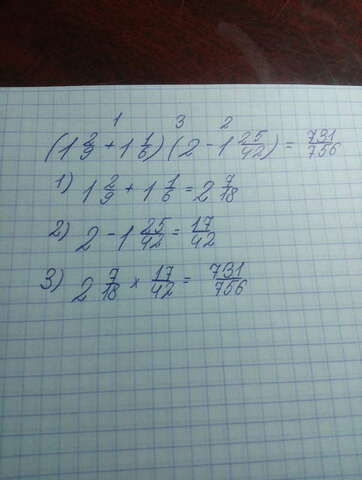 1 3 2
(1 2/9 + 1 1/6) (2 - 1 25/42) = 731/756
1) 1 2/9 + 1 1/6 = 2 7/18
2) 2 - 1 25/42 = 17/42
3) 2 7/18 × 17/42 = 731/756